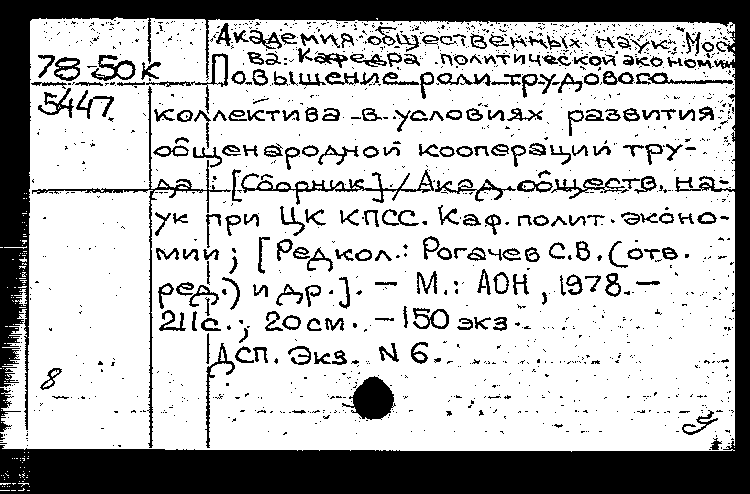 Академия общественных наук, Моск
ва. Кафедра политической экономии
78-50к Повышение роли трудового
5447 коллектива в условиях развития
общенародной кооперации тру-
да : [Сборник] / Акад. обществ. на-
ук при ЦК КПСС. Каф. полит. эконо-
мии ; [Редкол.: Рогачев С.В. (отв.
ред.) и др.]. — М.: АОН, 1978. —
211с.; 20см. — 150 экз.
ДСП. Экз. N 6.
8